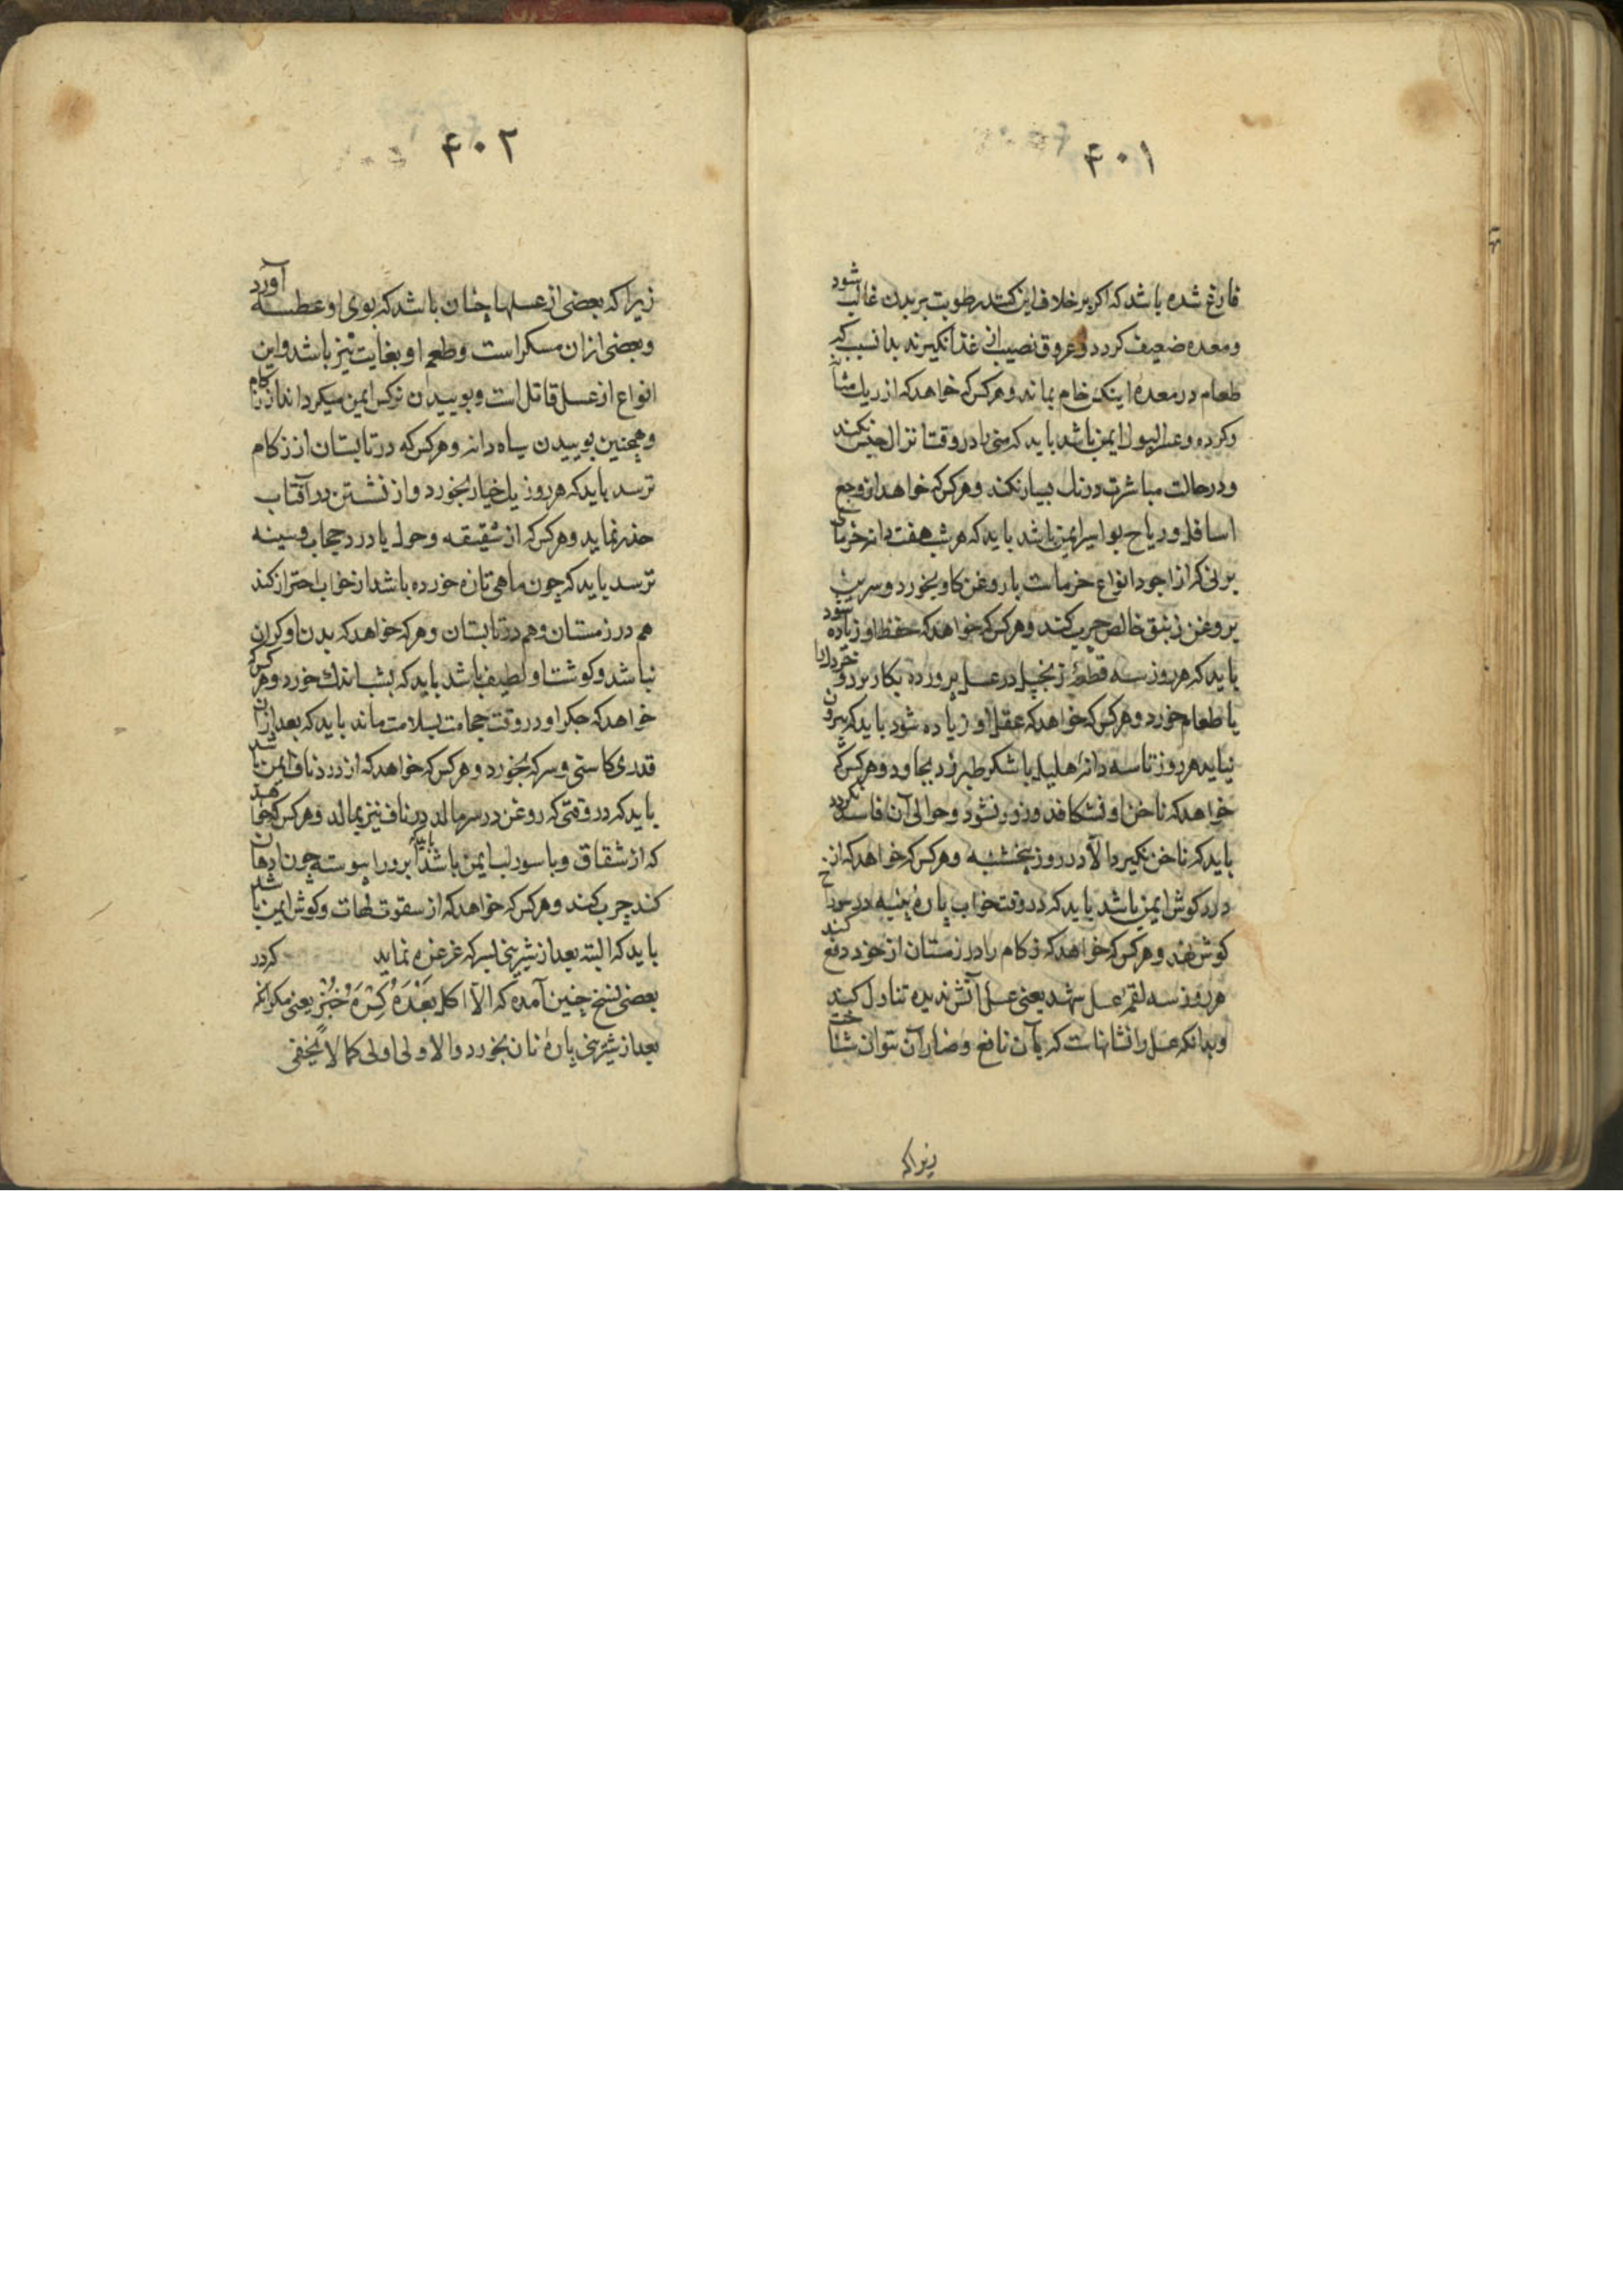 ۴۰۱
فارغ شده باشد که اکر بر خلاف این کند رطوبت بر بدن غالب شود
و معده ضعیف کردد و عروق نصیب از غذا نکیرند بدان سبب که
طعام در معده اینکس خام بماند و هر کس که خواهد که از ریک مثانه
و کرده و عسر البول ایمن باشد باید که منی را در وقت انزال حبس نکند
و در حالت مباشرت درنک بسیار نکند و هر کس که خواهد از وجع
اسافل و ریاح بواسیر ایمن باشد باید که هر شب هفت دانه خرمای
برنی که از اجود انواع خرماست با روغن کاو بخورد و سرین
بروغن زنبق خالص چرب کند و هر کس که خواهد که حفظ او زیاده شود
باید که هر روز سه قطعهٔ زنجبیل در عسل پرورده بکار برد و خردل را
با طعام خورد و هر کس که خواهد که عقل او زیاده شود باید که بیرون
نیاید هر روز تا سه دانه هلیله با شکر طبرزد بجاود و هر کس که
خواهد که ناخن او نشکافد و زرد نشود و حوالی آن فاسد نکردد
باید که ناخن نکیرد الا در روز پنجشنبه و هر کس که خواهد که از
درد کوش ایمن باشد باید که در وقت خواب پارهٔ پنبه در سوراخ
کوش نهد و هر کس که خواهد که زکام را در زمستان از خود دفع کند
هر روز سه لقمه عسل شهد یعنی عسل آتش ندیده تناول کند
و بدانکه عسل را نشانهاست که بآن نافع و ضار آن بتوان شناخت
زیرا که
۴۰۲
زیرا که بعضی از عسلها چنان باشد که بوی او عطسه آورد
و بعضی از ان مسکر است و طعم او بغایت تیز باشد و این
انواع از عسل قاتل است و بوییدن نرکس ایمن میکرداند از زکام
و همچنین بوییدن سیاه دانه و هر کس که در تابستان از زکام
ترسد باید که هر روز یک خیار بخورد و از نشستن در آفتاب
حذر نماید و هر کس که از شقیقه و حول یا درد حجاب و سینه
ترسد باید که چون ماهی تازه خورده باشد از خواب احتراز کند
هم در زمستان و هم در تابستان و هر که خواهد که بدن او کران
نباشد و کوشت او لطیف باشد باید که بشب اندک خورد و هر کس که
خواهد که جکر او در وقت حجامت بسلامت ماند باید که بعد از آن
قدری کاسنی و سرکه بخورد و هر کس که خواهد که از درد ناف ایمن باشد
باید که در وقتی که روغن در سر مالد در ناف نیز بمالد و هر کس که خواهد
که از شقاق و باسور لب ایمن باشد باید که ابرو را پیوسته چون ادهان
کند چرب کند و هر کس که خواهد که از سقوت لهات و کوش ایمن باشد
باید که البته بعد از شیرینی بسرکه غرغره نماید کردد
بعضی نسخ چنین آمده که الّا اکل بَعْدَهُ کِسْرَهَ خُبْزٍ یعنی مکر انکه
بعد از شیرینی پارهٔ نان بخورد و الاولی اولی کما لا یخفی